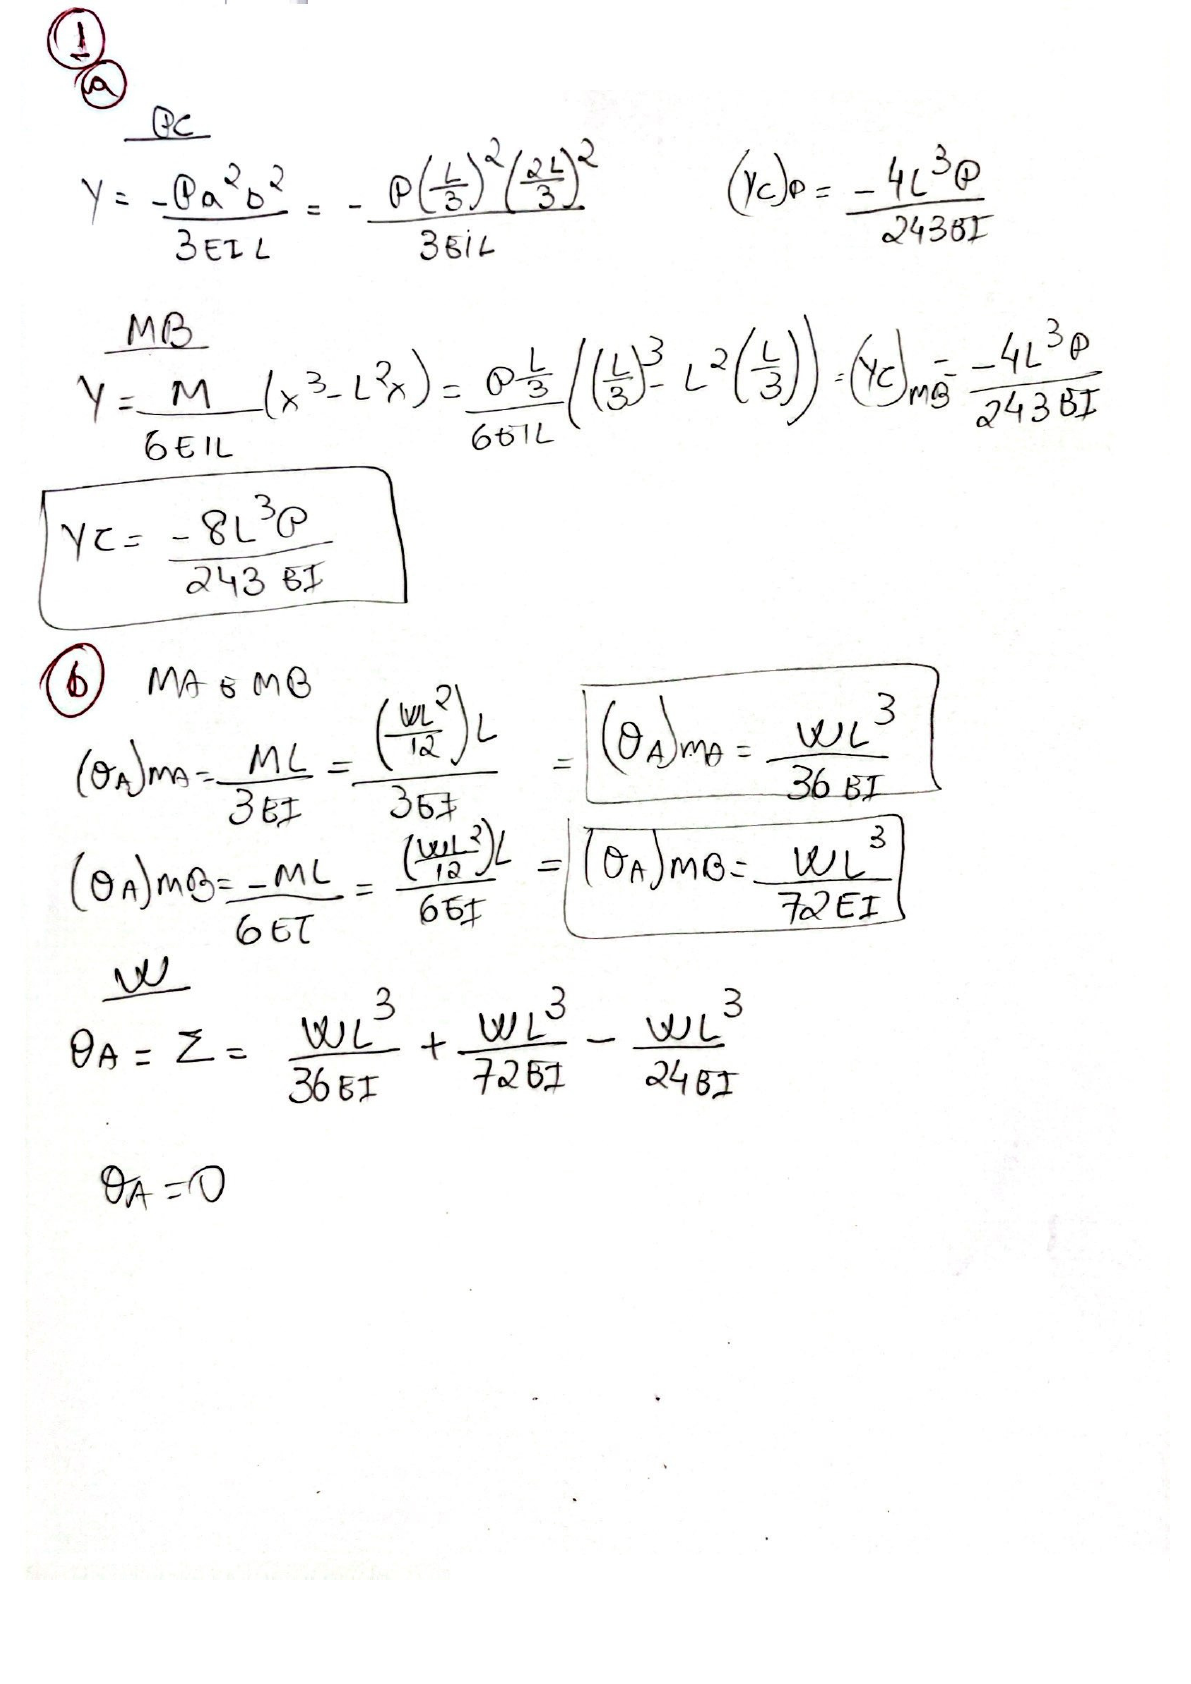 1
a
PC
Y = -Pa²b² / 3EIL = - P(L/3)²(2L/3)² / 3EIL (YC)P = -4L³P / 243EI
MB
Y = M / 6EIL (x³ - L²x) = P L/3 / 6EIL ((L/3)³ - L²(L/3)) = (YC)MB = -4L³P / 243EI
YC = -8L³P / 243 EI
b MA E MB
(θA)MA = ML / 3EI = (WL²/12)L / 3EI = (θA)MA = WL³ / 36 EI
(θA)MB = -ML / 6EI = (WL²/12)L / 6EI = (θA)MB = WL³ / 72EI
W
θA = Σ = WL³ / 36EI + WL³ / 72EI - WL³ / 24EI
θA = 0